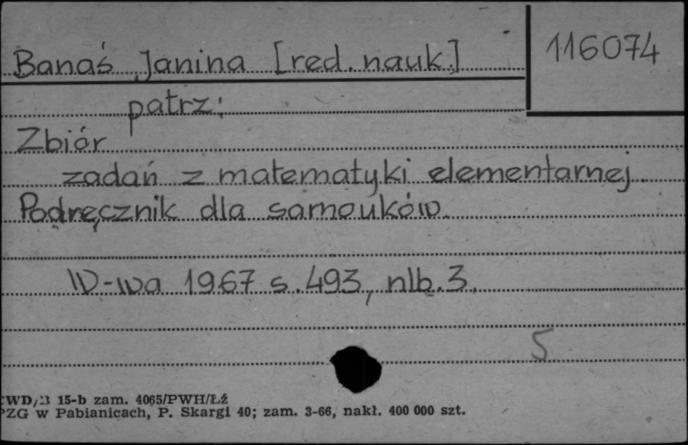 Banaś Janina [red. nauk.]
116074
patrz:
Zbiór
zadań z matematyki elementarnej.
Podręcznik dla samouków.
W-wa 1967 s. 493, nlb. 3.
5
CWD/B 15-b zam. 4065/PWH/Łź
PZG w Pabianicach, P. Skargi 40; zam. 3-66, nakł. 400 000 szt.